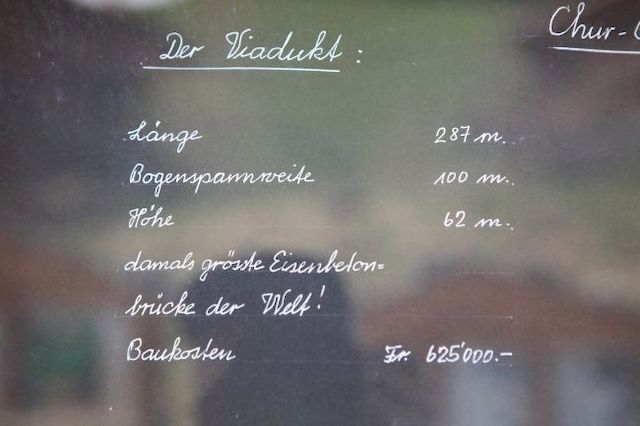 Der Viadukt :
Chur-
Länge 287 m.
Bogenspannweite 100 m.
Höhe 62 m.
damals grösste Eisenbeton=
brücke der Welt!
Baukosten Fr. 625'000.-